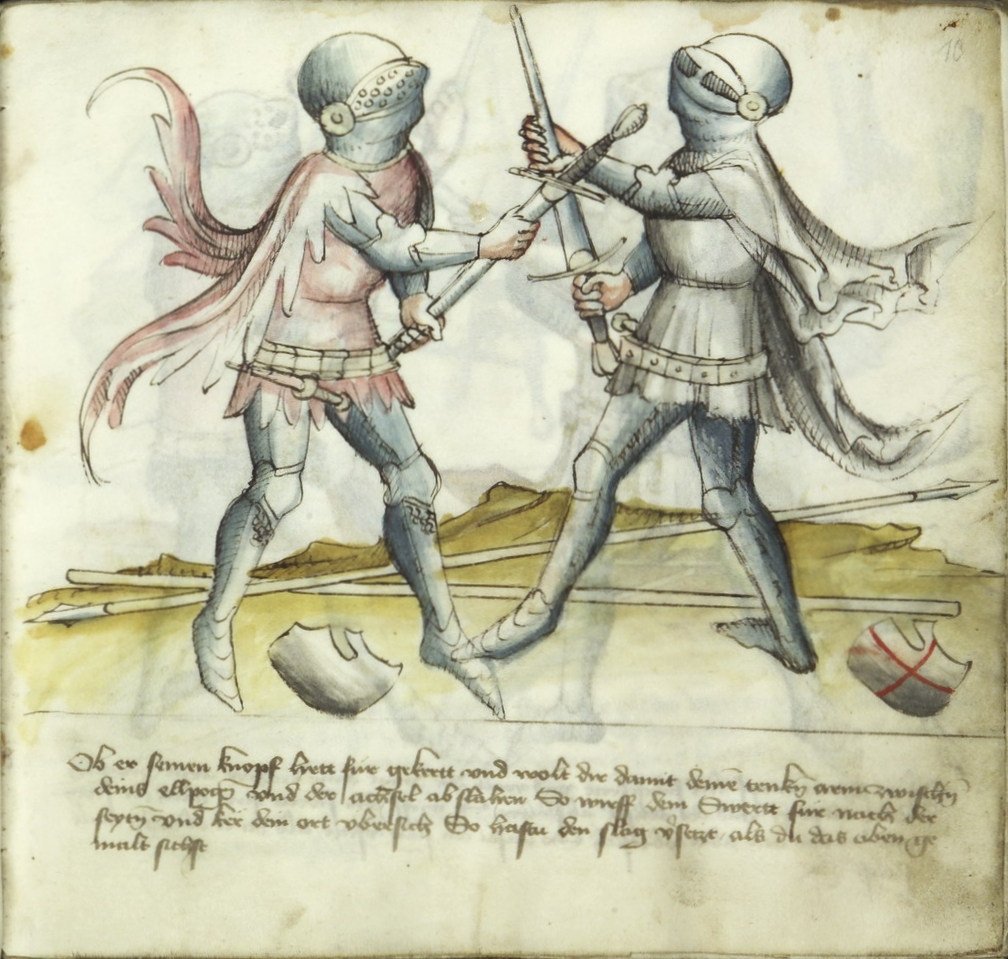 10
Ob er seinen knopf hett für gekertt vnd wolt dir damit deinē tenkñ arm zwischñ
deins ellpogñ vnd der achsel abslahen So wirff dein Swertt für nach der
seytñ vnd ker dein ort vbersich So hastu den slag v̉setzt als du das oben ge
malt sichst